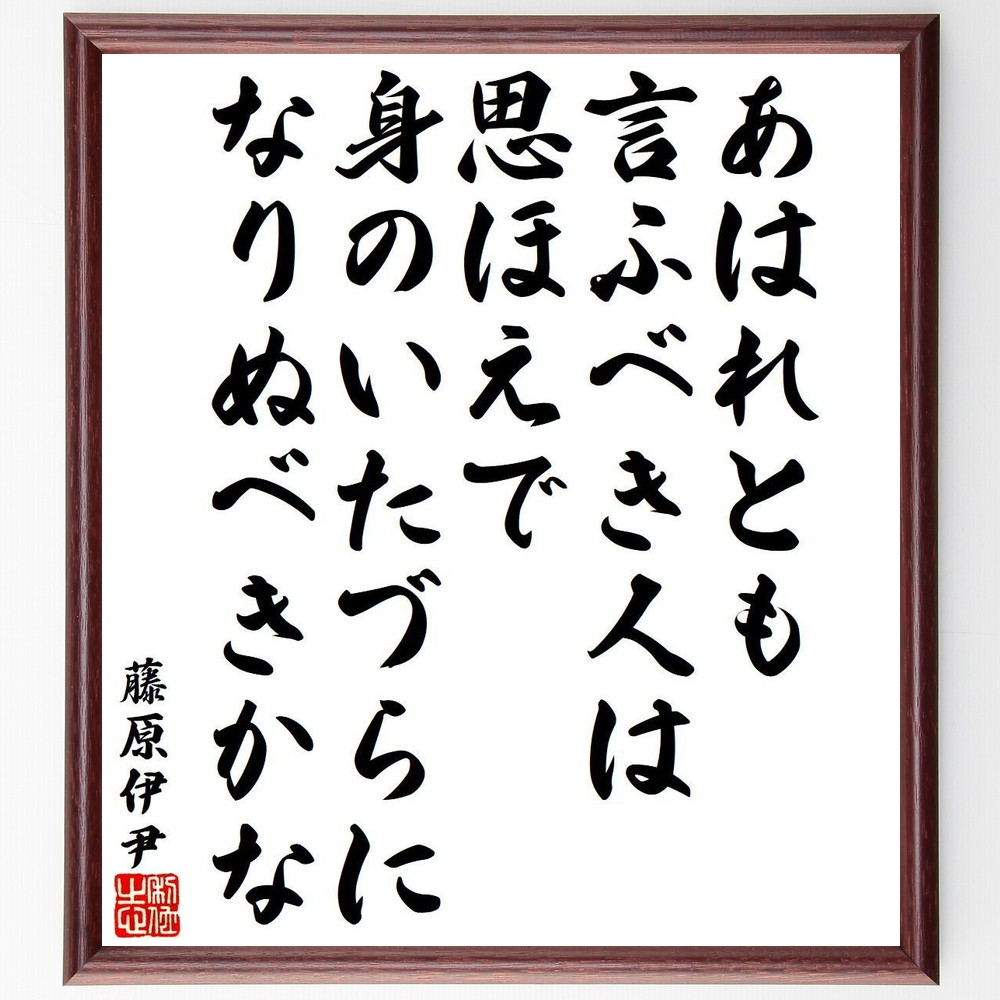 あはれとも
言ふべき人は
思ほえで
身のいたづらに
なりぬべきかな
藤原伊尹